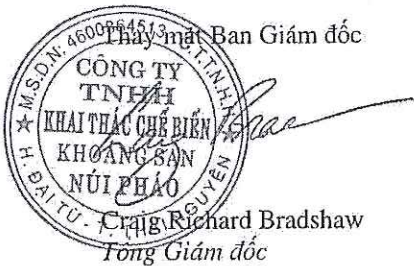 Thay mặt Ban Giám đốc
M.S.D.N: 4600864513 - C.T.T.N.H.H
CÔNG TY
TNHH
KHAI THÁC CHẾ BIẾN
KHOÁNG SẢN
NÚI PHÁO
H. ĐẠI TỪ - T. THÁI NGUYÊN
Craig Richard Bradshaw
Tổng Giám đốc